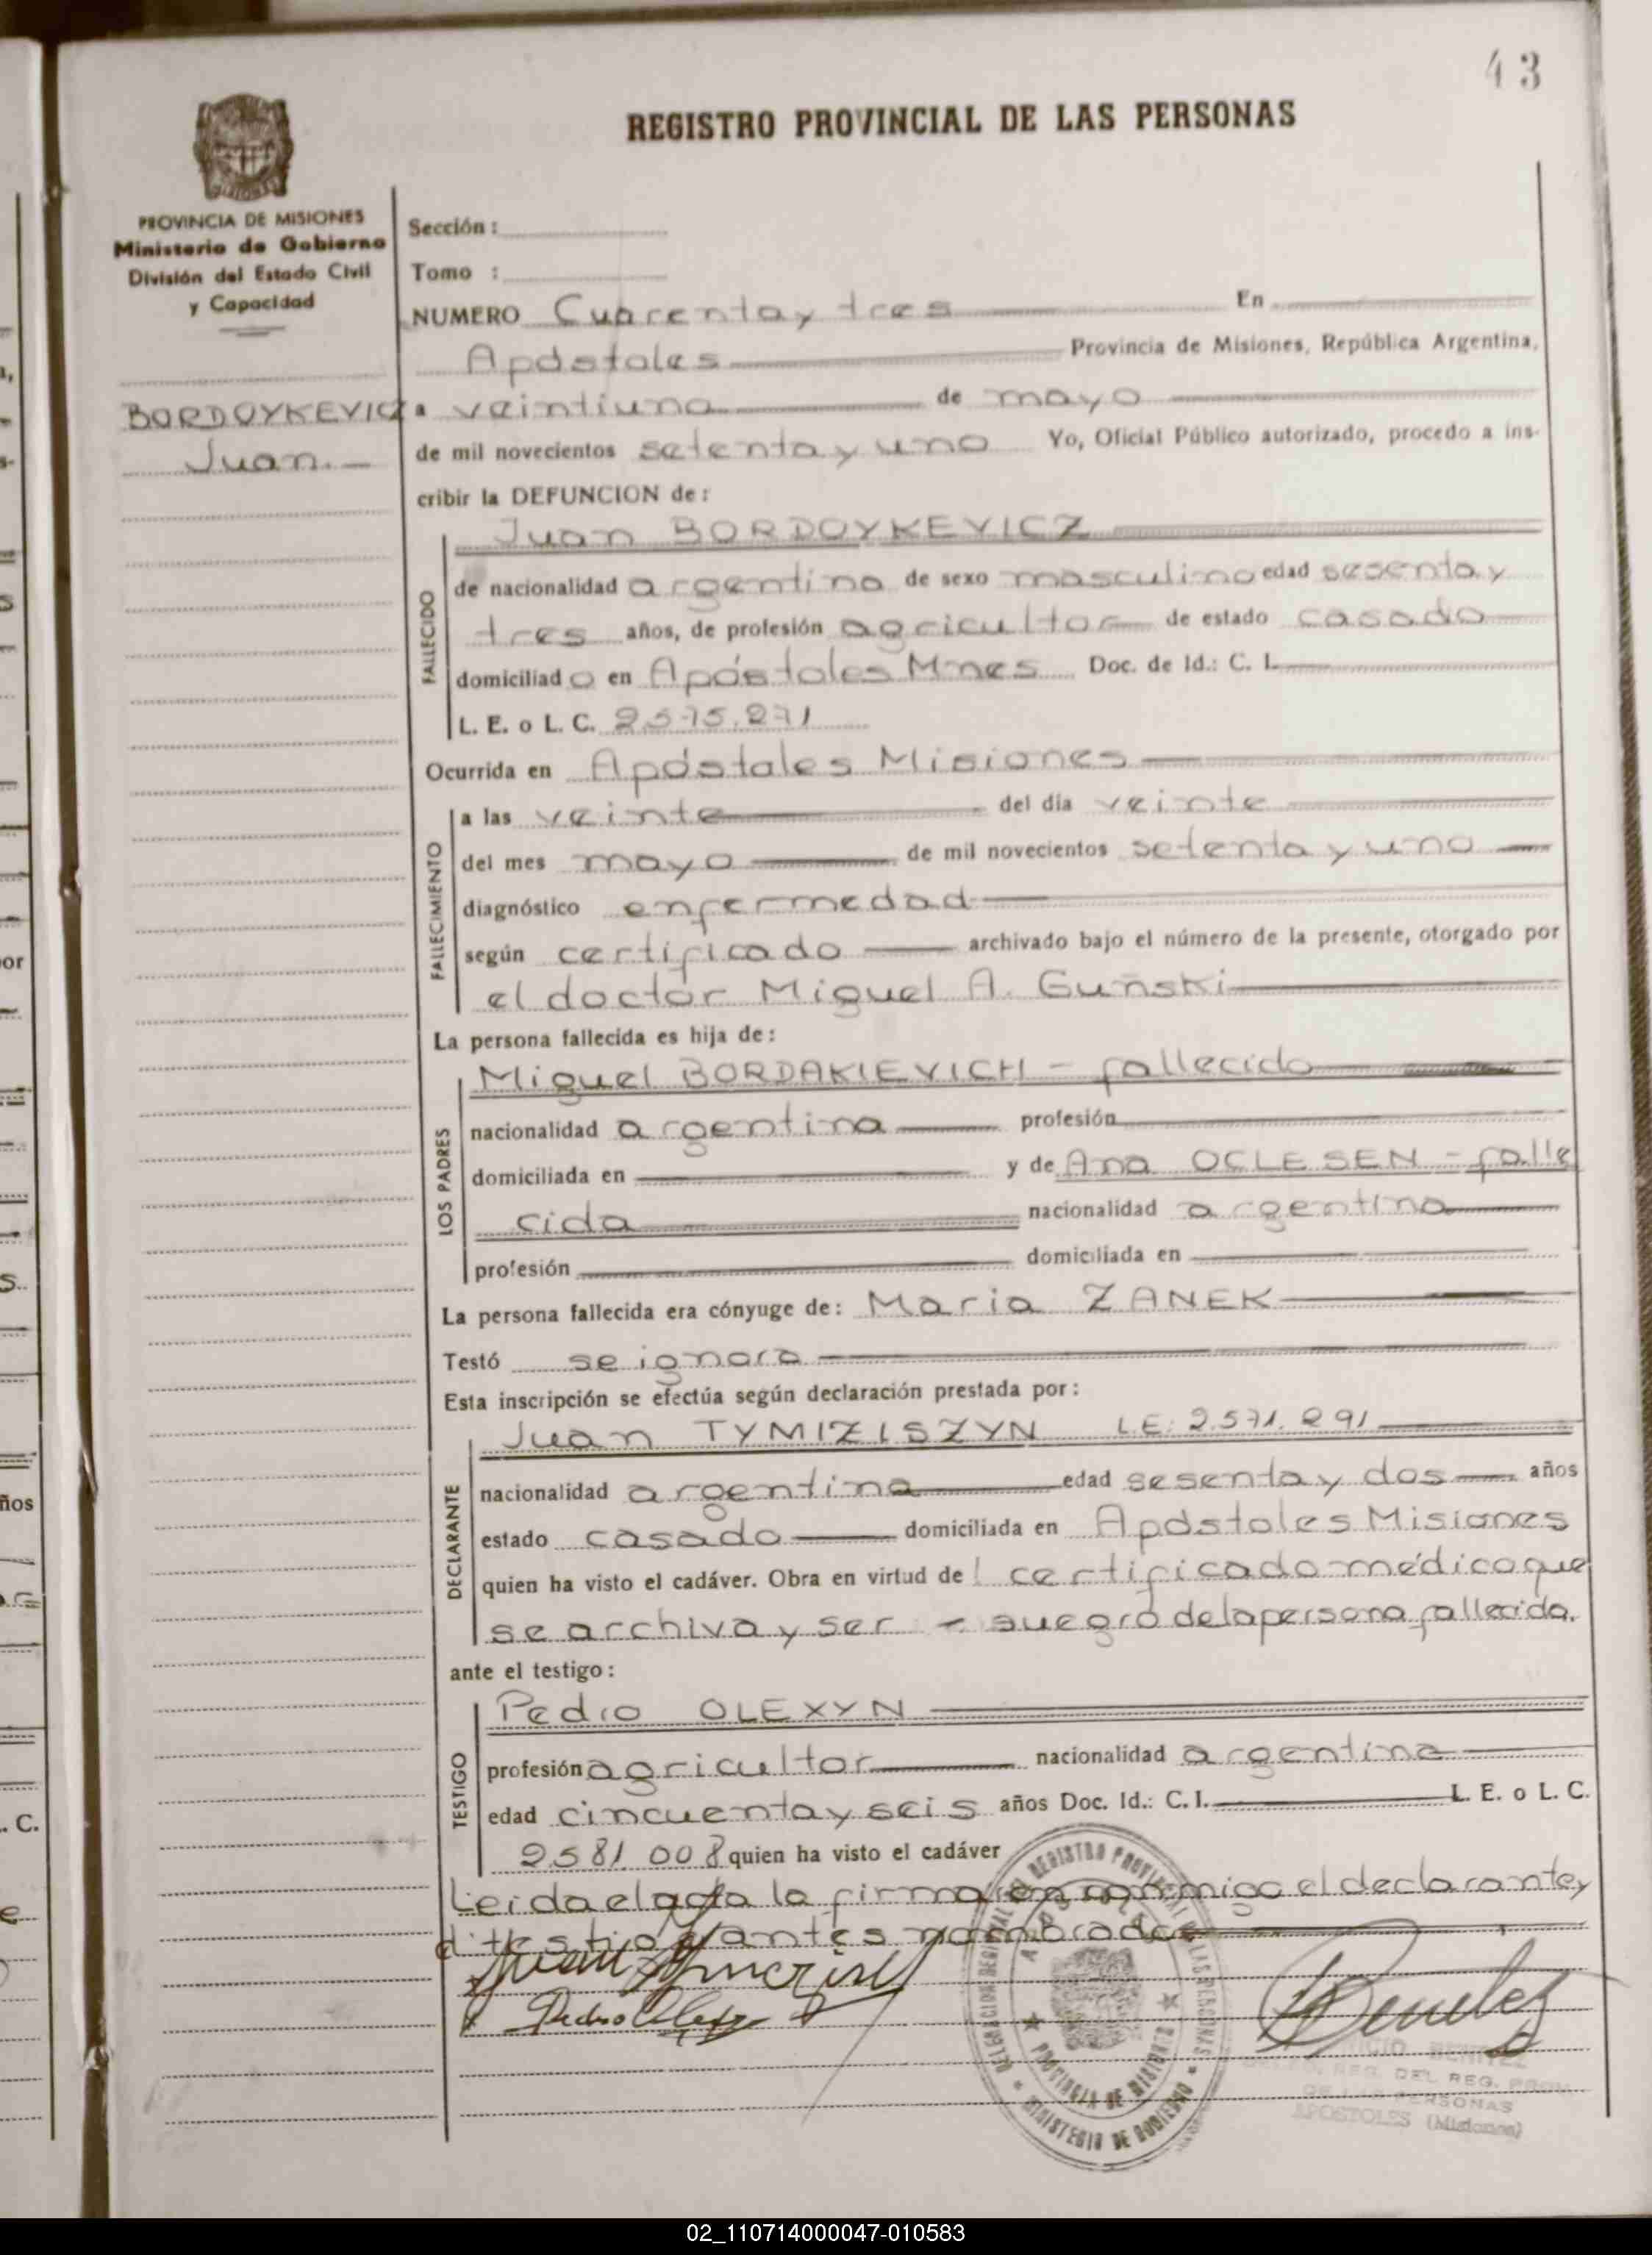 43
REGISTRO PROVINCIAL DE LAS PERSONAS
PROVINCIA DE MISIONES
Ministerio de Gobierno
División del Estado Civil
y Capacidad
BORDOYKEVICZ
Juan.
Sección :
Tomo :
NUMERO Cuarenta y tres En
Apóstoles Provincia de Misiones, República Argentina,
a veintiuno de mayo
de mil novecientos setenta y uno Yo, Oficial Público autorizado, procedo a ins-
cribir la DEFUNCION de :
Juan BORDOYKEVICZ
FALLECIDO
de nacionalidad argentina de sexo masculino edad sesenta y
tres años, de profesión agricultor de estado casado
domiciliado en Apóstoles Mnes Doc. de Id.: C. I.
L. E. o L. C. 2.575.271
Ocurrida en Apóstoles Misiones
FALLECIMIENTO
a las veinte del día veinte
del mes mayo de mil novecientos setenta y uno
diagnóstico enfermedad
según certificado archivado bajo el número de la presente, otorgado por
el doctor Miguel A. Guñski
La persona fallecida es hija de :
LOS PADRES
Miguel BORDAKIEVICH - fallecido
nacionalidad argentina profesión
domiciliada en y de Ana OCLESEN - falle
cida nacionalidad argentina
profesión domiciliada en
La persona fallecida era cónyuge de : Maria ZANEK
Testó se ignora
Esta inscripción se efectúa según declaración prestada por :
DECLARANTE
Juan TYMIZISZYN L.E: 2.571.291
nacionalidad argentina edad sesenta y dos años
estado casado domiciliada en Apóstoles Misiones
quien ha visto el cadáver. Obra en virtud del certificado médico que
se archiva y ser - suegro de la persona fallecida.
ante el testigo :
TESTIGO
Pedro OLEXYN
profesión agricultor nacionalidad argentina
edad cincuenta y seis años Doc. Id.: C. I. L. E. o L. C.
2.581.008 quien ha visto el cadáver
Leida el acta la firman conmigo el declarante y
el testigo antes nombrados
DELEGACION REGISTRO PROVINCIAL DE LAS PERSONAS
APOSTOLES
PROVINCIA DE MISIONES
MINISTERIO DE GOBIERNO
BENITEZ
DEL REG. PROV.
DE LAS PERSONAS
APOSTOLES (Misiones)
02_110714000047-010583